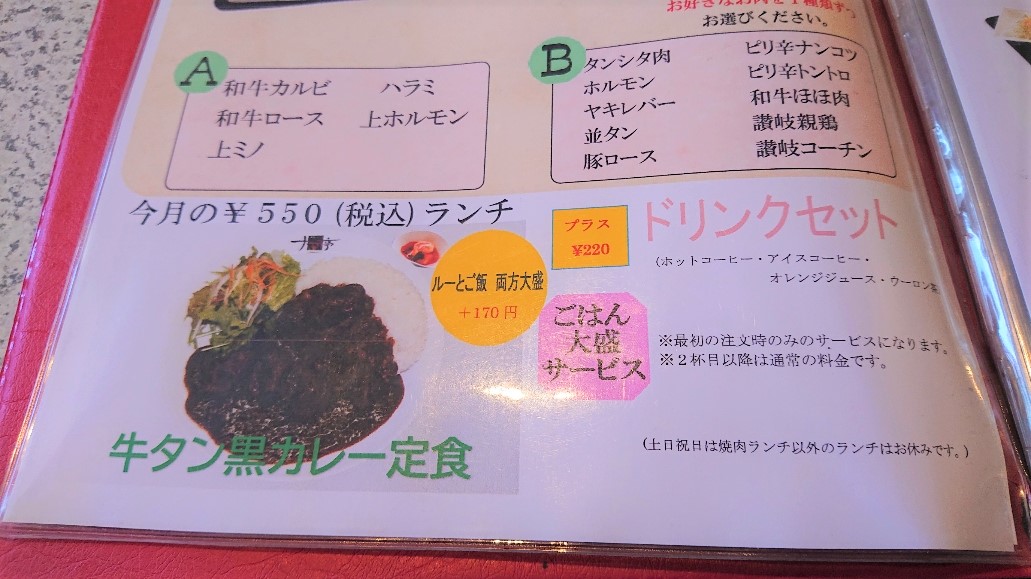 お好きなお肉を１種類ずつ
お選びください。
A
和牛カルビ ハラミ
和牛ロース 上ホルモン
上ミノ
B
タンシタ肉 ピリ辛ナンコツ
ホルモン ピリ辛トントロ
ヤキレバー 和牛ほほ肉
並タン 讃岐親鶏
豚ロース 讃岐コーチン
今月の￥５５０(税込)ランチ
ルーとご飯 両方大盛
＋170円
牛タン黒カレー定食
プラス
¥220
ドリンクセット
（ホットコーヒー・アイスコーヒー・
オレンジジュース・ウーロン茶
ごはん
大盛
サービス
※最初の注文時のみのサービスになります。
※２杯目以降は通常の料金です。
（土日祝日は焼肉ランチ以外のランチはお休みです。）